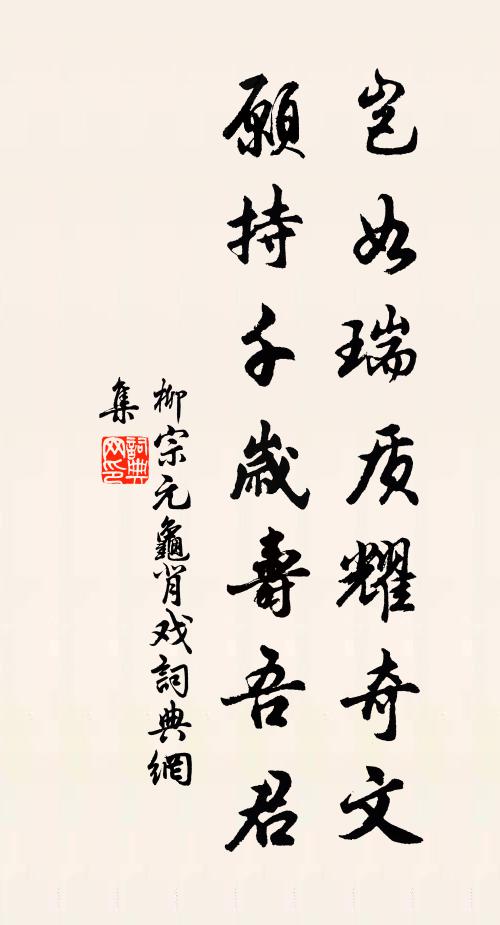 岂如瑞质耀奇文
願持千歲壽吾君
柳宗元龜背戏詞典網
集
詞典網印